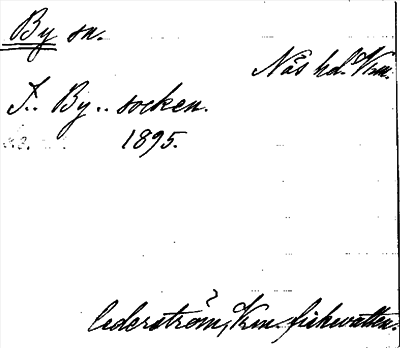 By sn.
Näs hd. Vrm.
I.. By.. socken.
1895.
Cederström, Vrm. fiskvatten.